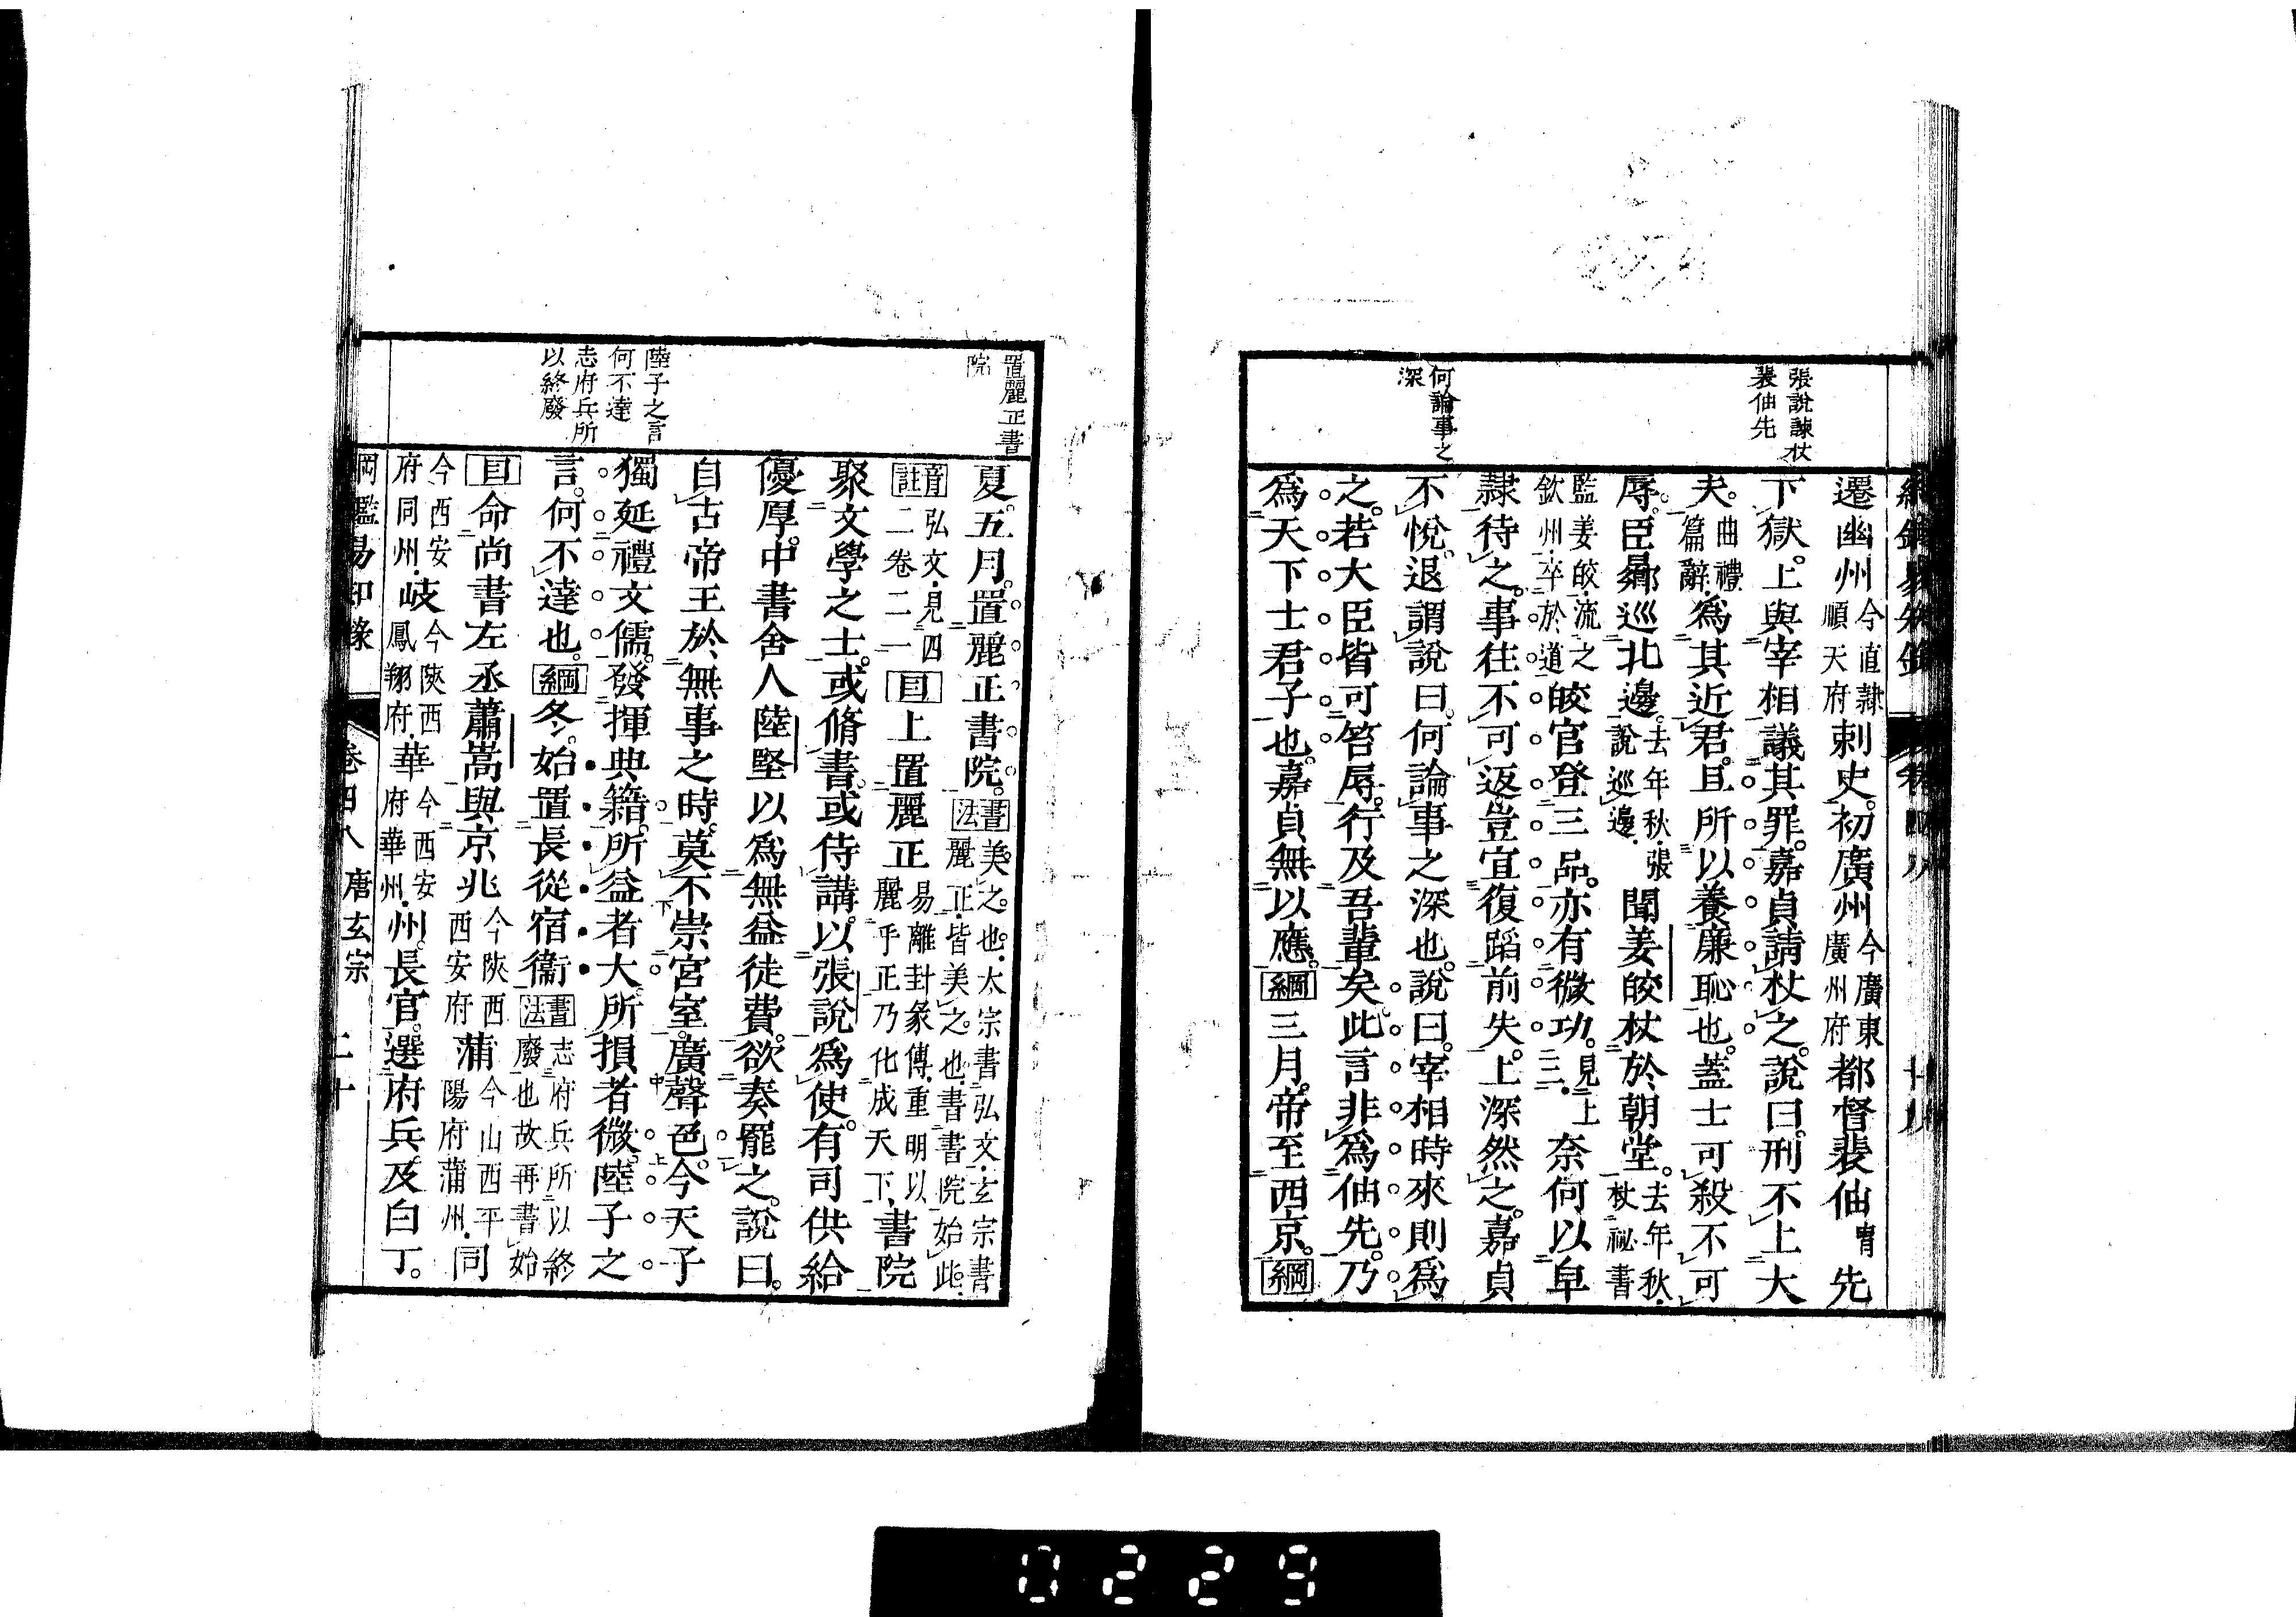 張說諫杖
裴伷先
何論事之
深
遷幽州今直隷順天府刺史。初廣州今廣東廣州府都督裴伷冑先
下獄。上與宰相議其罪。嘉貞請杖之。說曰。刑不上大
夫。曲禮篇辭。爲其近君。且所以養廉恥也。蓋士可殺不可
辱。臣曏巡北邊。去年秋.張說巡邊。聞姜皎杖於朝堂。去年秋.杖祕書
監姜皎.流之欽州.卒於道皎官登三品。亦有微功。見上二三.奈何以皁
隷待之。事往不可返。豈宜復蹈前失。上深然之。嘉貞
不悅。退謂說曰。何論事之深也。說曰。宰相時來則爲
之。若大臣皆可笞辱。行及吾輩矣。此言非爲伷先。乃
爲天下士君子也。嘉貞無以應。綱三月。帝至西京。綱
置麗正書
院
陸子之言
何不達
志府兵所
以終廢
夏。五月。置麗正書院。書法美之也.太宗書弘文.玄宗書麗正.皆美之也.書書院始此.
音註弘文.見四二卷二一目上置麗正易離封彖傳.重明以麗乎正乃化成天下.書院
聚文學之士。或脩書。或侍講。以張說爲使。有司供給
優厚。中書舍人陸堅以爲無益徒費。欲奏罷之。說曰。
自古帝王於無事之時。莫不崇宮室。廣聲色。今天子
獨延禮文儒。發揮典籍。所益者大。所損者微。陸子之
言。何不達也。綱冬。始置長從宿衞書法志府兵所以終廢也故再書始
目命尚書左丞蕭嵩與京兆今陝西西安府蒲今山西平陽府蒲州.同
今西安府同州.岐今陝西鳳翔府.華今西安府華州.州。長官。選府兵。及白丁。
綱鑑易知錄 卷四八 唐玄宗 二十